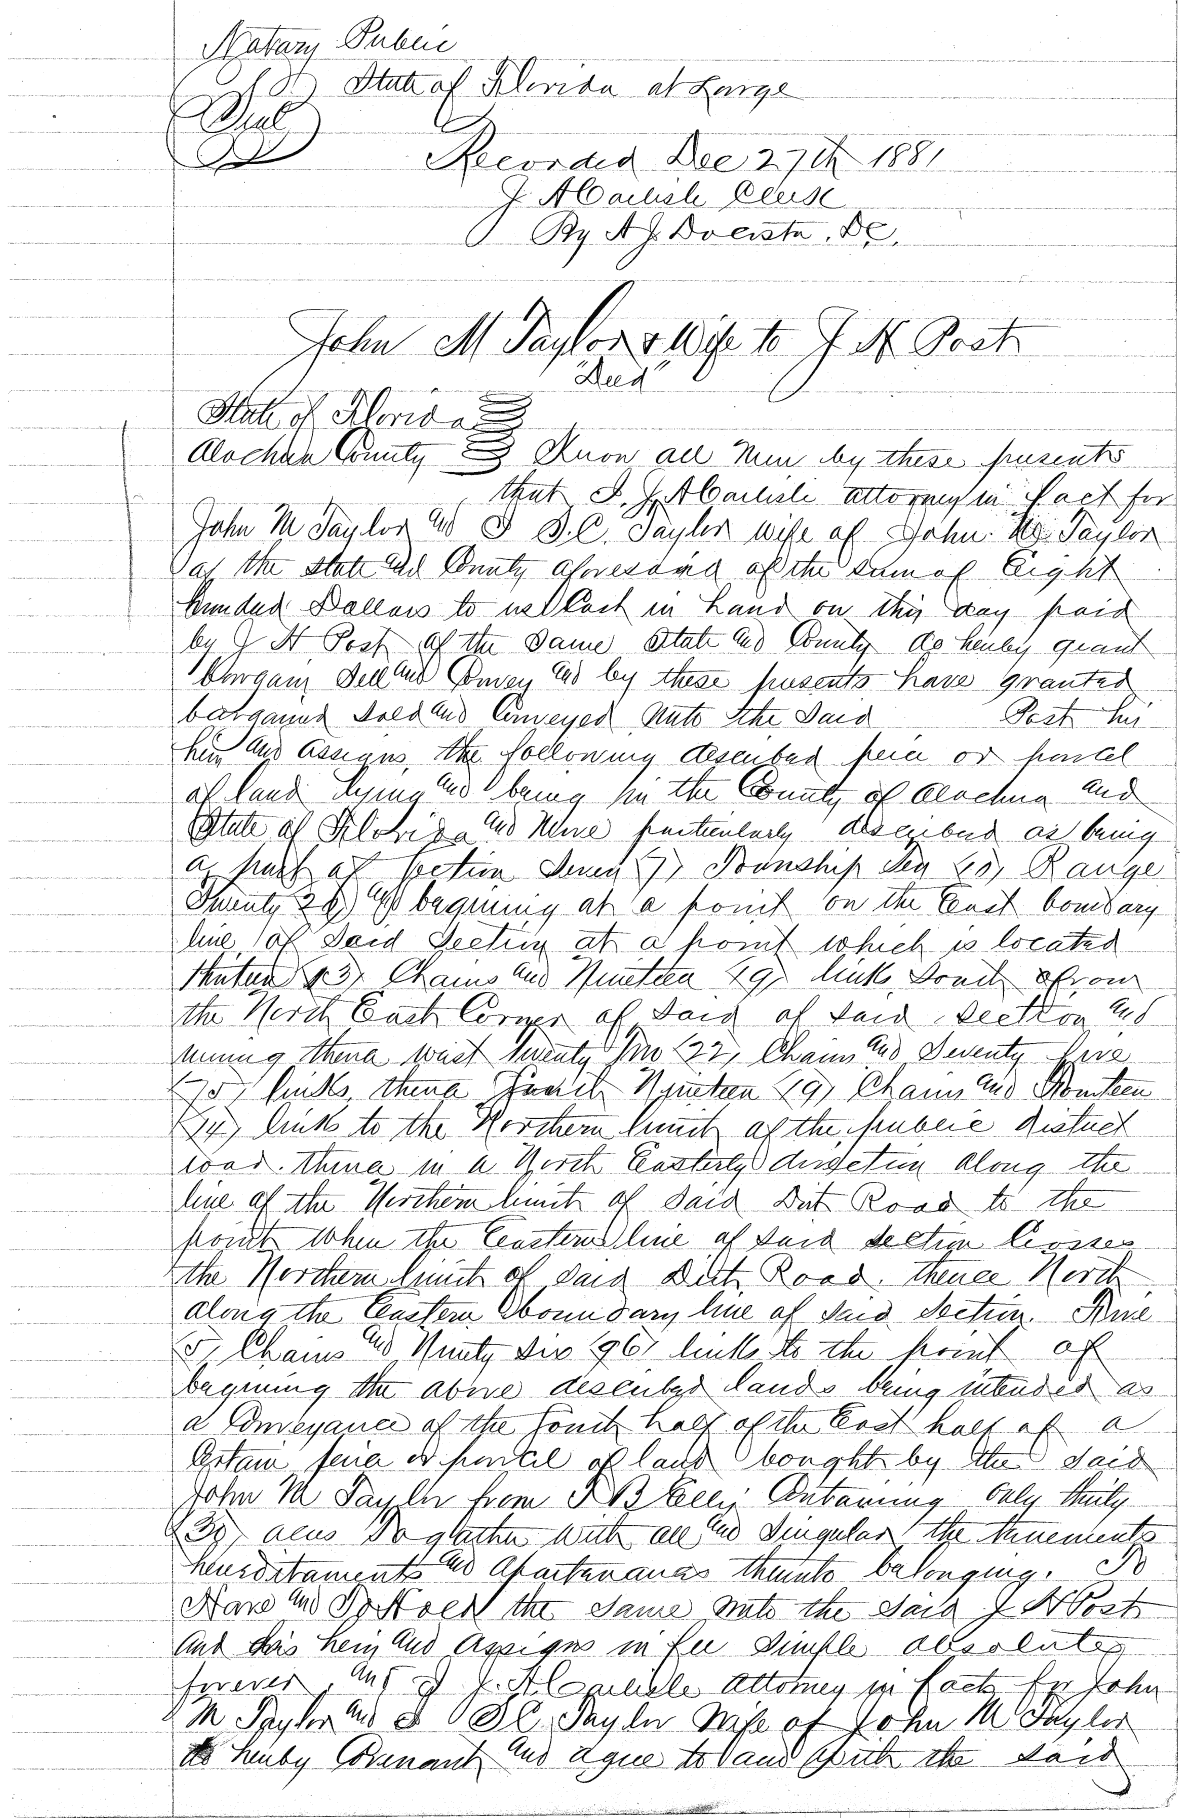 Notary Public
State of Florida at Large
Seal
Recorded Dec 27th 1881
J. A Carlisle Clerk
By A. J. Dacosta, D.C.
John M Taylor & Wife to J H Post
"Deed"
State of Florida
Alachua County Know all Men by these presents
that I. J. A Carlisle attorney in fact for
John M Taylor and I S.C. Taylor wife of John. M. Taylor
of the State and County aforesaid of the sum of Eight
hundred Dollars to us Cash in hand on this day paid
by J H Post of the same State and County do hereby grant
bargain Sell and Convey and by these presents have granted
bargained sold and Conveyed unto the Said Post his
heirs and assigns, the following described peice or parcel
of land lying and being in the County of Alachua and
State of Florida and More particularly described as being
a part of Section Seven (7) Township Ten (10) Range
Twenty (20) and begining at a point on the East boundary
line of Said Section at a point which is located
thirteen (13) Chains and Nineteen (19) links South from
the North East Corner of Said of Said Section and
runing thence west twenty two (22) Chains and Seventy five
(75) links, thence South Nineteen (19) Chains and Fourteen
(14) links to the Northern limit of the public district
road. thence in a North Easterly direction along the
line of the Northern limit of Said Dist Road to the
point when the Eastern line of Said Section Crosses
the Northern limit of Said Dist Road. thence North
along the Eastern boundary line of Said Section. Five
(5) Chains and Ninety Six (96) links to the point of
begining the above described lands being intended as
a Conveyance of the South half of the East half of a
Certain peice or parcel of land bought by the Said
John M Taylor from Ellis Containing only thirty
(30) acres Together with all and Singular the tenements
hereditaments and apartanances thereunto belonging. To
Have and To Hold the Same unto the Said J H Post
and his heirs and assigns in fee Simple absolute
forever. and I J. A Carlisle Attorney in fact for John
M Taylor and I S C. Taylor Wife of John M Taylor
do hereby Covenant and agree to and with the Said